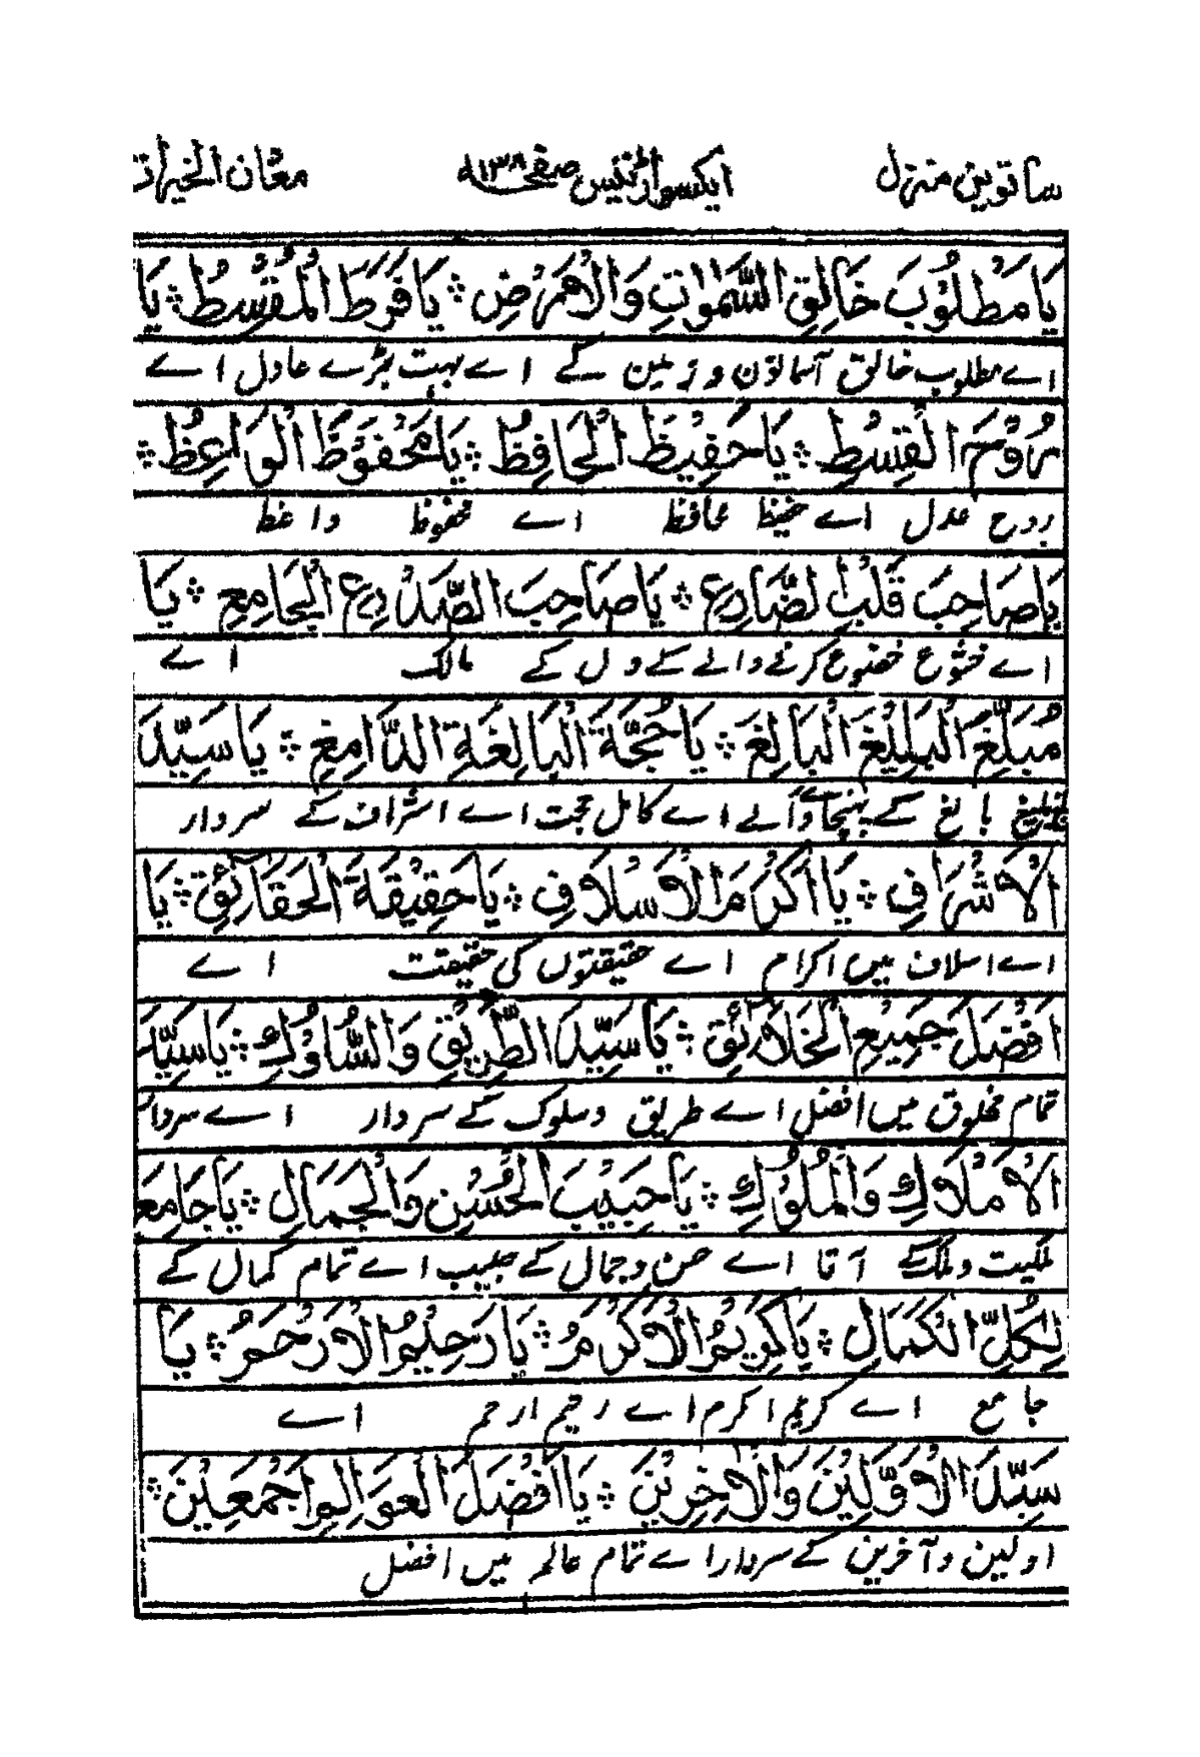 ساتویں منزل ایکسواڑتیس صفحہ ١٣٨ معان الخیرات
يَا مَطْلُوْبَ خَالِقِ السَّمٰوَاتِ وَالْاَرْضِ ۞ يَا فَرَطَ الْمُقْسِطُ ۞ يَا
اے مطلوب خالق آسمانوں و زمین کے اے بہت بڑے عادل اے
رُوْحَ الْقِسْطِ ۞ يَا حَفِيْظَ الْحَافِظُ ۞ يَا مَحْفُوْظَ الْوَاعِظُ ۞
روح عدل اے حفیظ محافظ اے محفوظ واعظ
يَا صَاحِبَ قَلْبِ الضَّارِعِ ۞ يَا صَاحِبَ الصَّدْرِعِ الْجَامِعِ ۞ يَا
اے خشوع خضوع کرنے والے کے دل کے مالک اے
مُبَلِّغَ الْبَلِيْغَ الْبَالِغَ ۞ يَا حُجَّةَ الْبَالِغَةِ الدَّامِغِ ۞ يَا سَيِّدَ
بالغ کے پہنچانے والے اے کامل حجت اے اشراف کے سردار
الْاَشْرَافِ ۞ يَا اَكْرَمَ الْاَسْلَافِ ۞ يَا حَقِيْقَةَ الْحَقَائِقِ ۞ يَا
اے اسلاف میں اکرام اے حقیقتوں کی حقیقت اے
اَفْضَلَ جَمِيْعِ الْخَلَائِقِ ۞ يَا سَيِّدَ الطَّرِيْقِ وَالسُّلُوْكِ ۞ يَا سَيِّدَ
تمام مخلوق میں افضل اے طریق و سلوک کے سردار اے سردار
الْاَمْلَاكِ وَالْمُلُوْكِ ۞ يَا حَبِيْبَ الْحُسْنِ وَالْجَمَالِ ۞ يَا جَامِعَ
ملکیت و ملک کے آقا اے حسن و جمال کے حبیب اے تمام کمال کے
لِكُلِّ الْكَمَالِ ۞ يَا كَرِيْمُ الْاَكْرَمُ ۞ يَا رَحِيْمُ الْاَرْحَمُ ۞ يَا
جامع اے کریم اکرم اے رحیم ارحم اے
سَيِّدَ الْاَوَّلِيْنَ وَالْاٰخِرِيْنَ ۞ يَا اَفْضَلَ الْعَوَالِمِ اَجْمَعِيْنَ ۞
اولین و آخرین کے سردار اے تمام عالم میں افضل